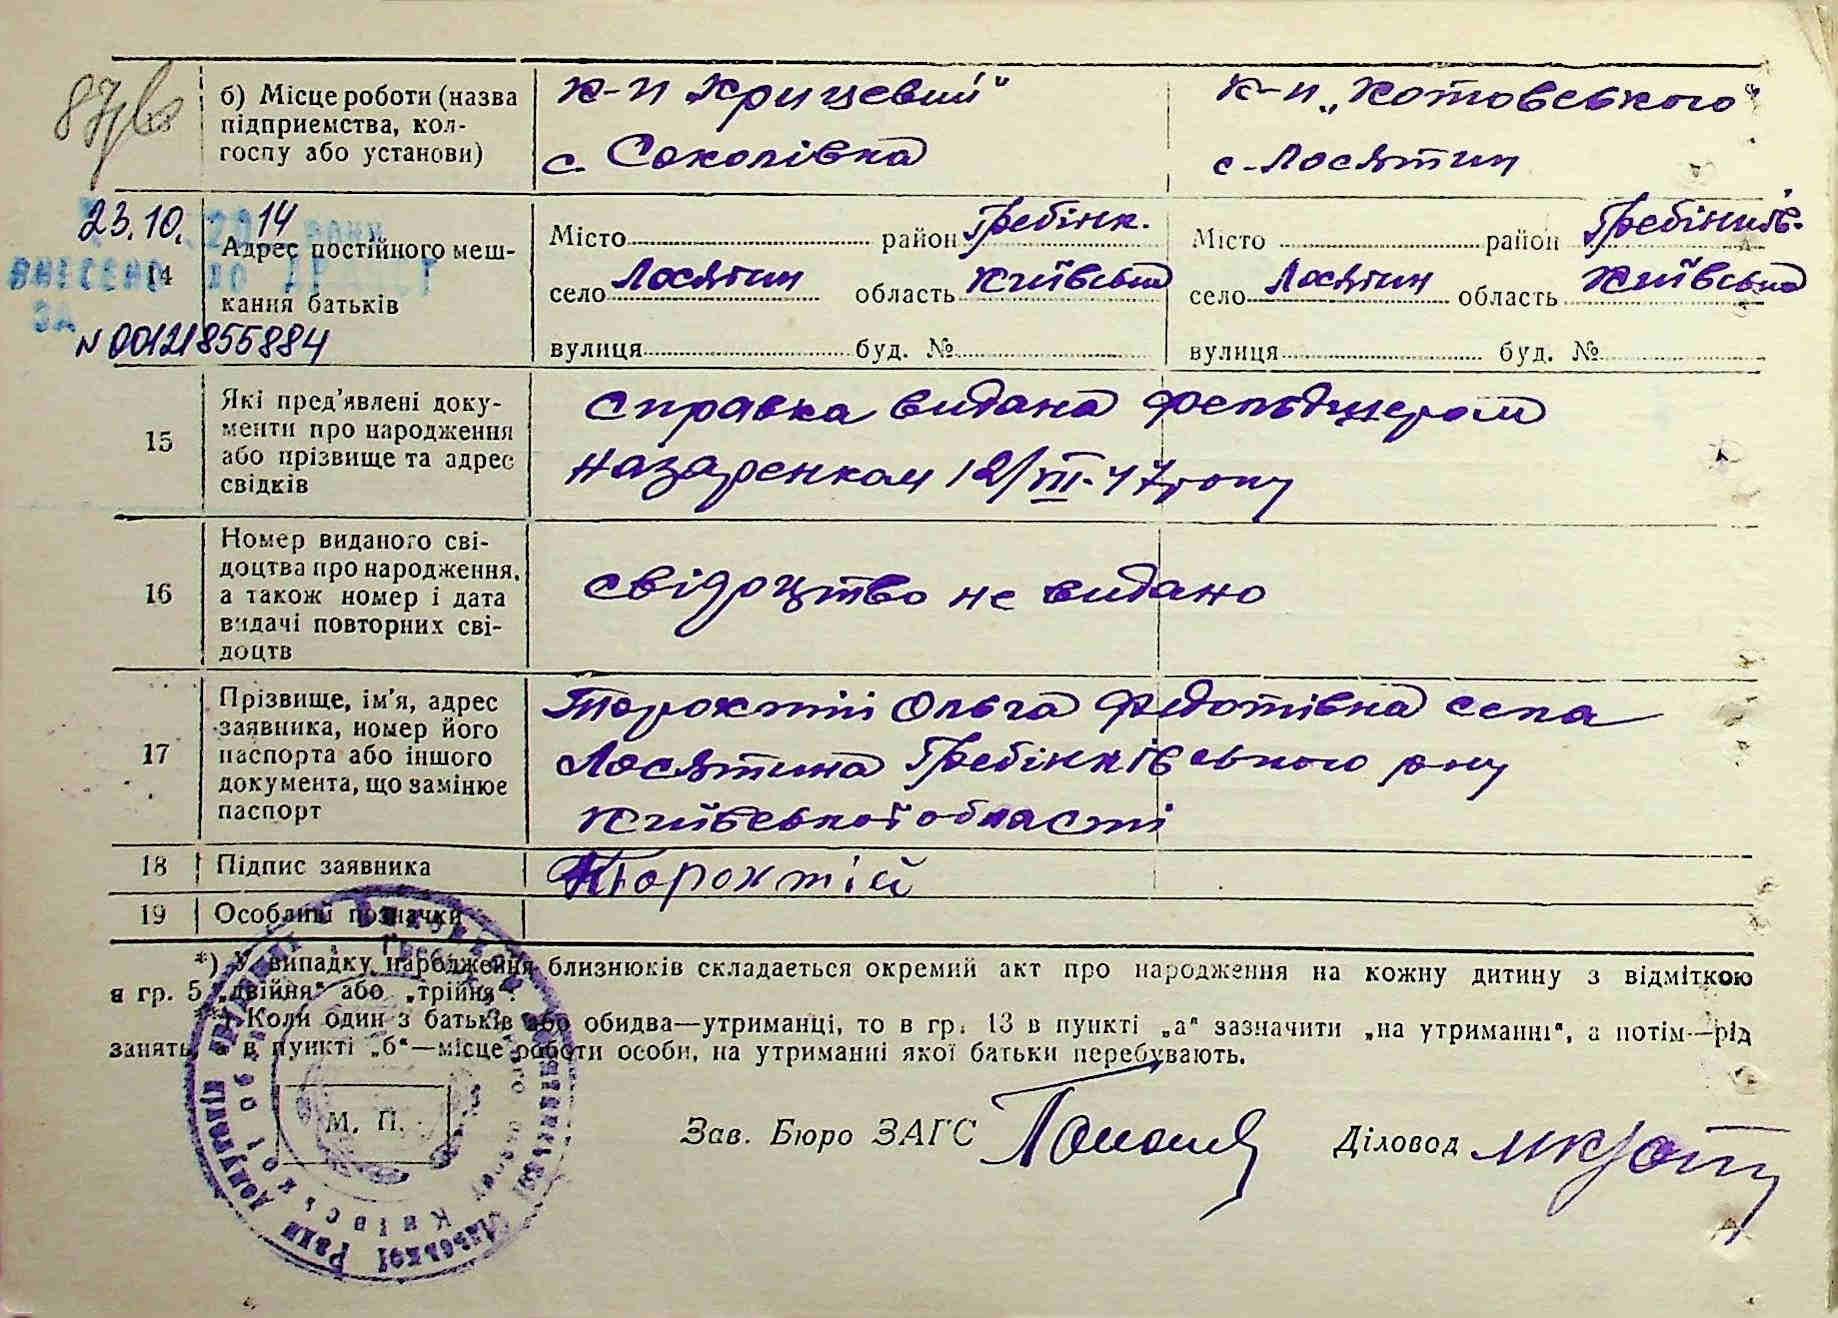 б) Місце роботи (назва
підприємства, кол-
госпу або установи)
к-п „Кричевий"
с. Соколівка
к-п „Котовського"
с. Лосятин
23.10. 2014 року
внесено до ДРАЦСГ
за
N 00121855884
14
Адрес постійного меш-
кання батьків
Місто район Гребінк.
село Лосятин область Київська
вулиця буд. №
Місто район Гребінків.
село Лосятин область Київська
вулиця буд. №
15
Які пред'явлені доку-
менти про народження
або прізвище та адрес
свідків
справка видана фельдшером
Назаренком 12/VII-47 року
16
Номер виданого сві-
доцтва про народження,
а також номер і дата
видачі повторних сві-
доцтв
свідоцтво не видано
17
Прізвище, ім'я, адрес
заявника, номер його
паспорта або іншого
документа, що замінює
паспорт
Торохтій Ольга Федотівна села
Лосятина Гребінківського р-ну
Київської області
18 Підпис заявника
Торохтій
19 Особливі позначки
*) У випадку народження близнюків складається окремий акт про народження на кожну дитину з відміткою
в гр. 5 „двійня" або „трійня".
**) Коли один з батьків або обидва—утриманці, то в гр. 13 в пункті „а" зазначити „на утриманні", а потім—рід
занять, а в пункті „б"—місце роботи особи, на утриманні якої батьки перебувають.
М. П.
Зав. Бюро ЗАГС
Діловод